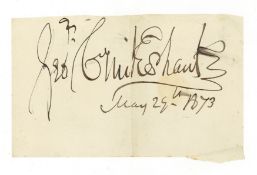 Geo. Cruikshank
May 29th 1873